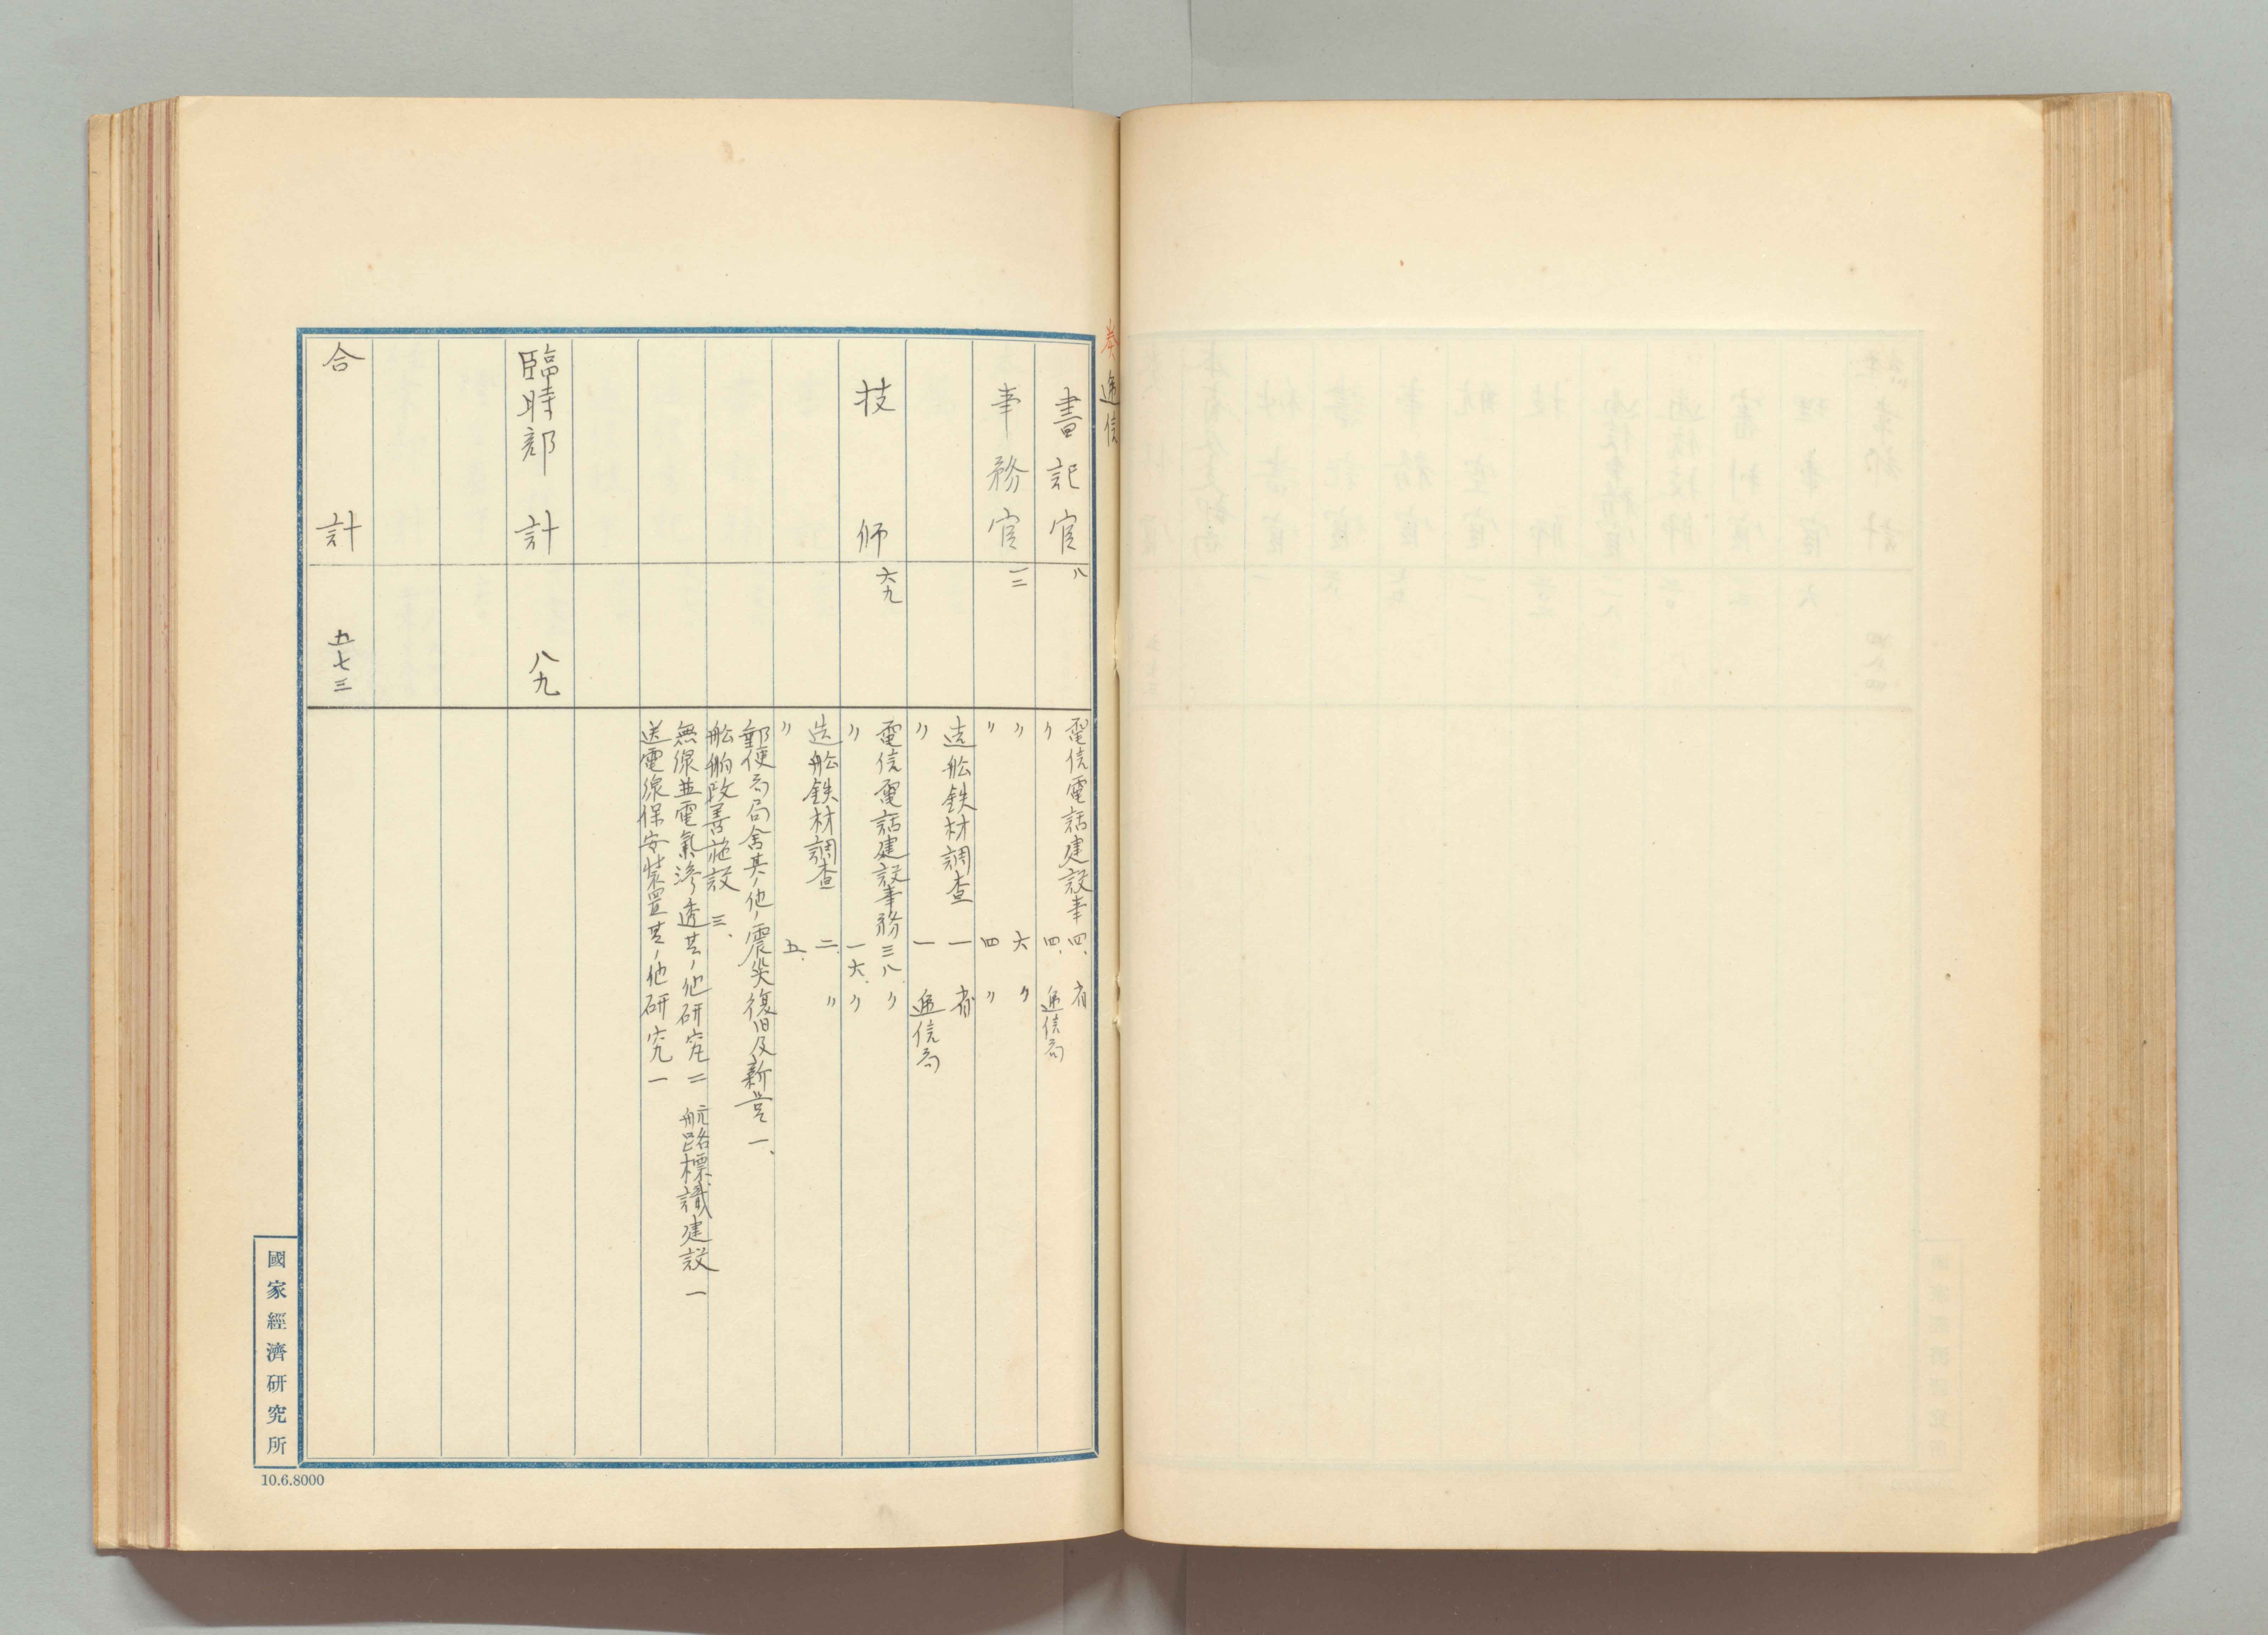 奏 逓信
書記官 八
電信電話建設事 四、 省
〃 四、 逓信局
事務官 一二
〃 六 〃
〃 四 〃
造舩鉄材調査 一 省
〃 一 逓信局
技師 六九
電信電話建設事務 三八、 〃
〃 一六、 〃
造舩鉄材調査 二、 〃
〃 五、
郵便局局舎其ノ他ノ震災復旧及新営 一、
舩舶改善施設 三、
無線並電氣滲透其ノ他研究 二 航路標識建設 一
送電線保安装置其ノ他研究 一
臨時部計 八九
合計 五七三
國家經濟研究所
10.6.8000